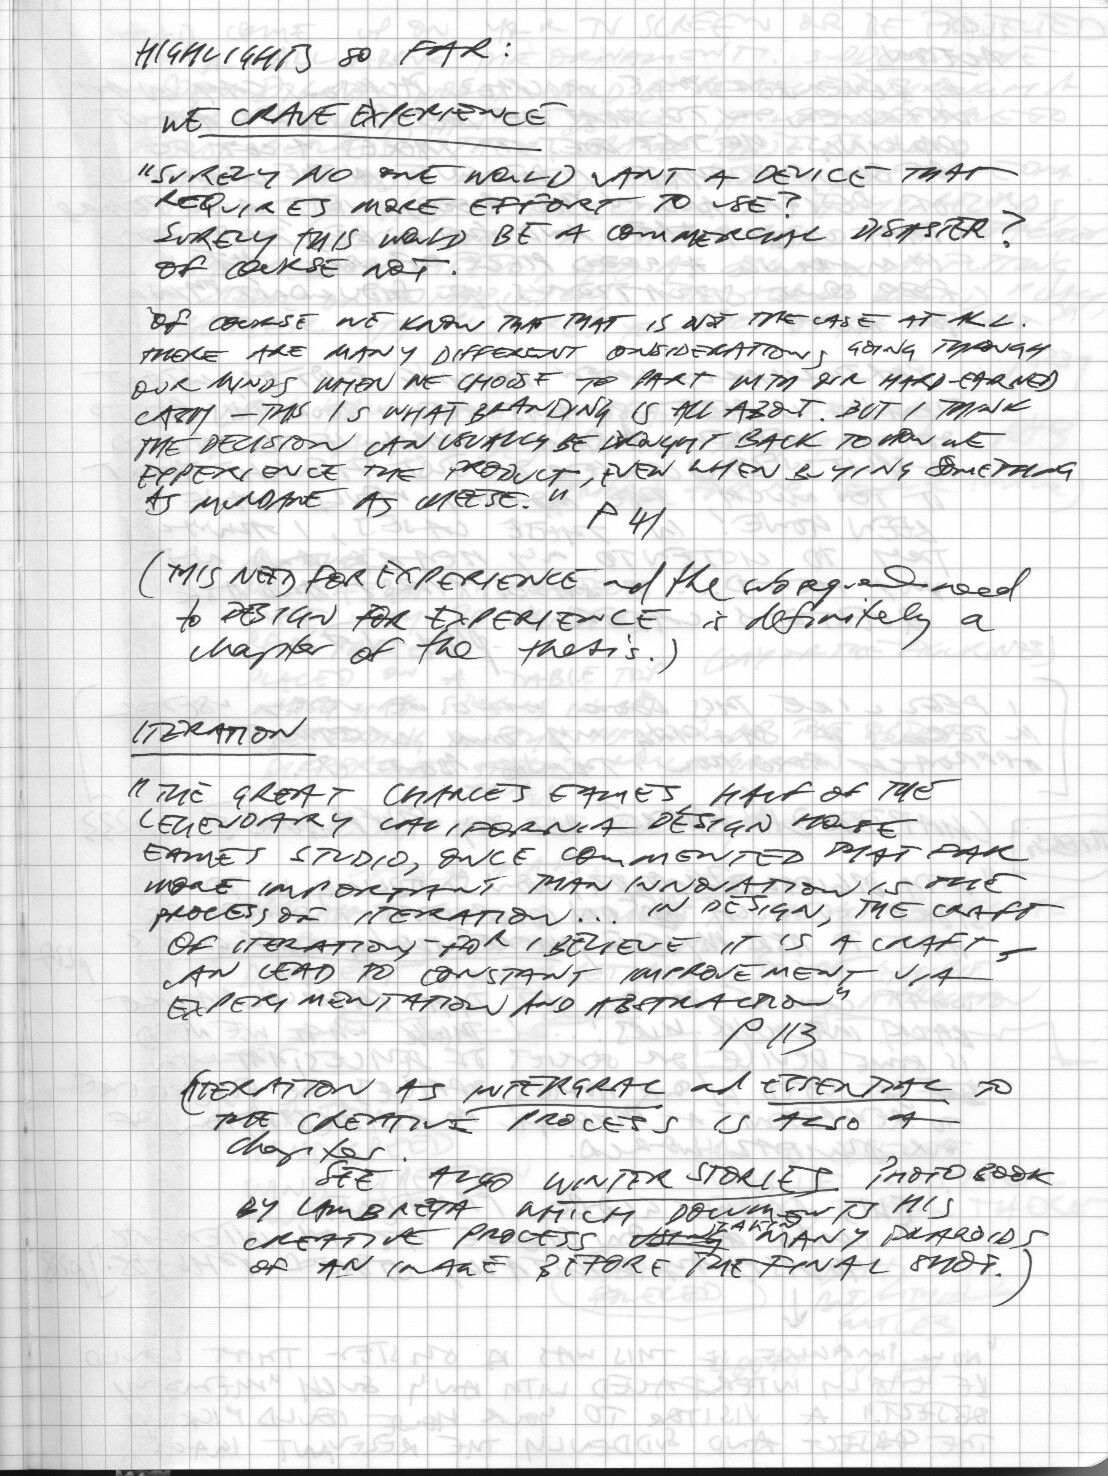 HIGHLIGHTS SO FAR:
WE CRAVE EXPERIENCE
"SURELY NO ONE WOULD WANT A DEVICE THAT
REQUIRES MORE EFFORT TO USE?
SURELY THIS WOULD BE A COMMERCIAL DISASTER?
OF COURSE NOT.
OF COURSE WE KNOW THAT THAT IS NOT THE CASE AT ALL.
THERE ARE MANY DIFFERENT CONSIDERATIONS GOING THROUGH
OUR MINDS WHEN WE CHOOSE TO PART WITH OUR HARD-EARNED
CASH – THIS IS WHAT BRANDING IS ALL ABOUT. BUT I THINK
THE DECISION CAN USUALLY BE BROUGHT BACK TO HOW WE
EXPERIENCE THE PRODUCT, EVEN WHEN BUYING SOMETHING
AS MUNDANE AS CHEESE."
P 41
(THIS NEED FOR EXPERIENCE and the subsequent need
to DESIGN FOR EXPERIENCE is definitely a
chapter of the thesis.)
ITERATION
"THE GREAT CHARLES EAMES, HALF OF THE
LEGENDARY CALIFORNIA DESIGN HOUSE
EAMES STUDIO, ONCE COMMENTED THAT FAR
MORE IMPORTANT THAN INNOVATION IS THE
PROCESS OF ITERATION... IN DESIGN, THE CRAFT
OF ITERATION, – FOR I BELIEVE IT IS A CRAFT, –
CAN LEAD TO CONSTANT IMPROVEMENT VIA
EXPERIMENTATION AND ABSTRACTION"
P 113
(ITERATION AS INTERGRAL and ESSENTIAL TO
THE CREATIVE PROCESS IS ALSO A
chapter.
SEE ALSO WINTER STORIES PHOTOBOOK
BY LAMBRETA WHICH DOCUMENTS HIS
CREATIVE PROCESS TAKING MANY POLAROIDS
OF AN IMAGE BEFORE THE FINAL SHOT.)